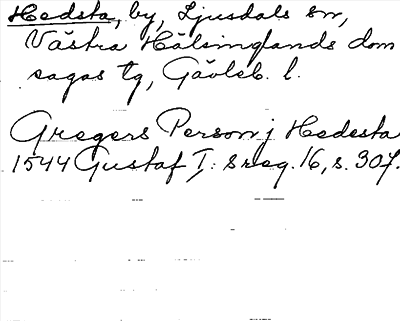 Hedsta, by, Ljusdals sn,
Västra Hälsinglands dom
sagas tg, Gävleb. l.
Gregers Person j Hedesta
1544 Gustaf I: s reg. 16, s. 307.